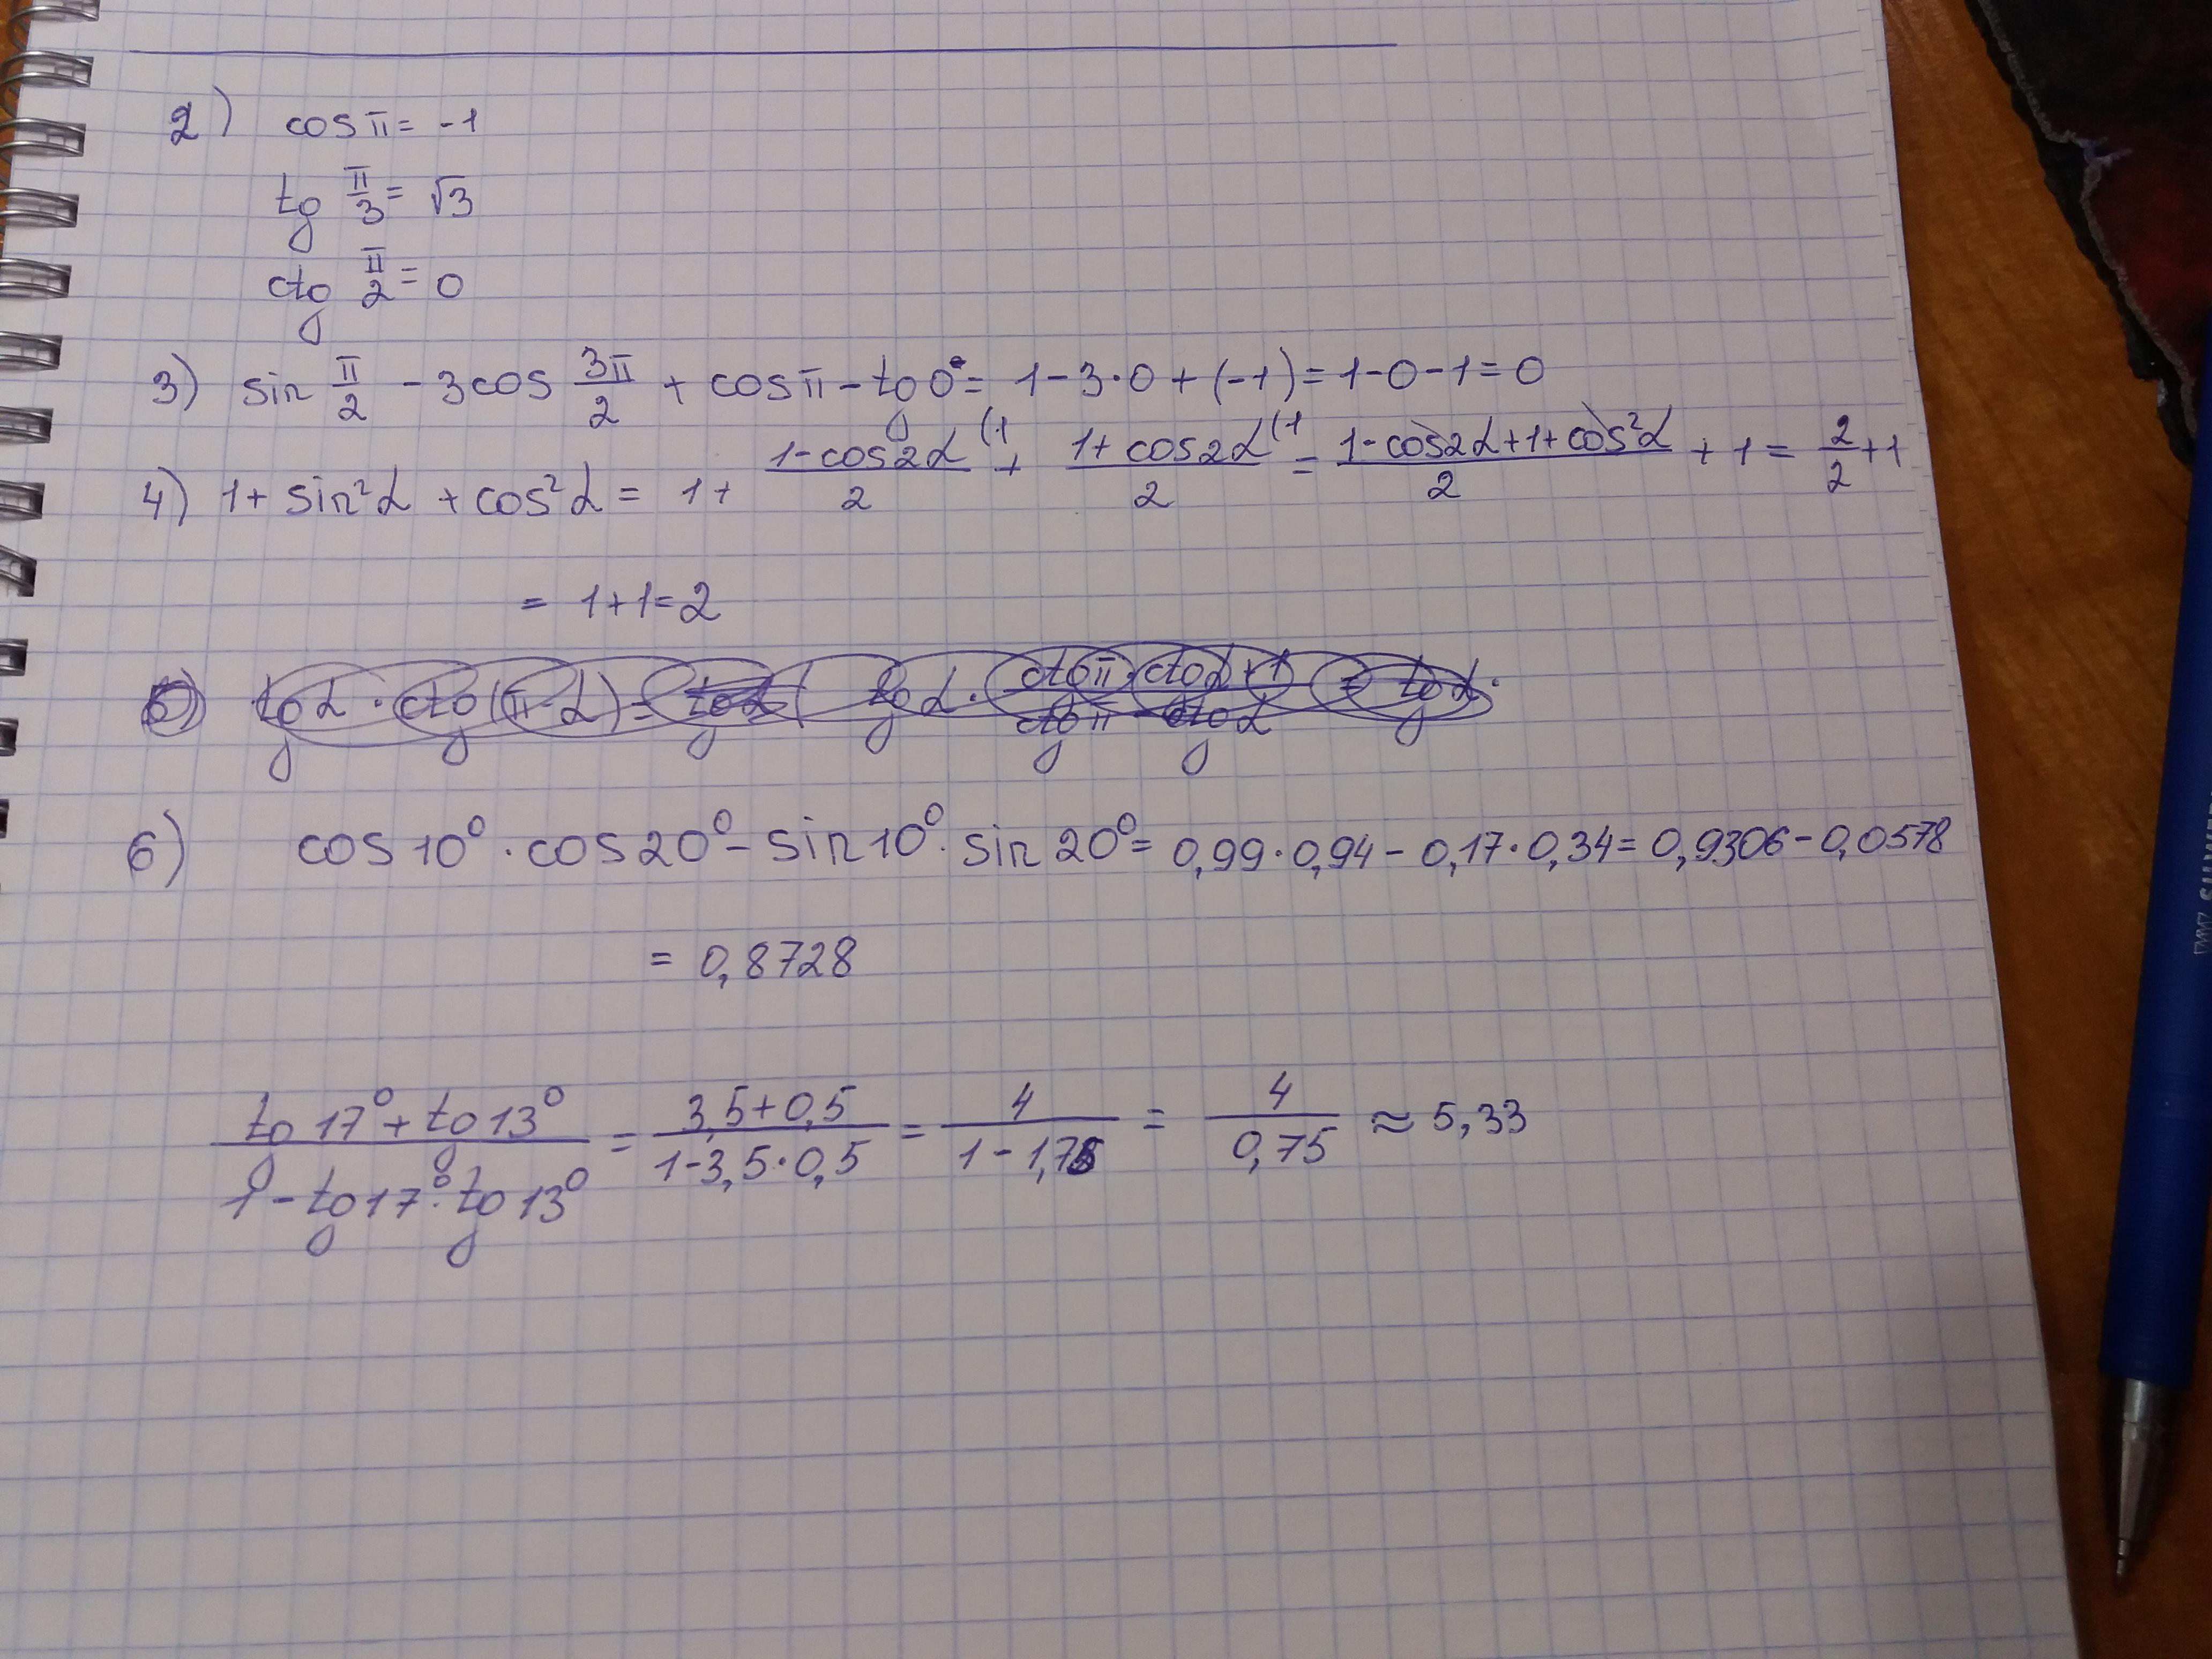 2) cos π = -1
tg π/3 = √3
ctg π/2 = 0
3) sin π/2 - 3cos 3π/2 + cos π - tg 0° = 1 - 3·0 + (-1) = 1 - 0 - 1 = 0
4) 1 + sin²α + cos²α = 1 + (1 - cos2α)/2 (1 + (1 + cos2α)/2 (1 = (1 - cos2α + 1 + cos²α)/2 + 1 = 2/2 + 1
= 1 + 1 = 2
5) tg α · ctg (π - α) = tg α · (ctg π · ctg α + 1)/(ctg π - ctg α) = tg α ·
6) cos 10° · cos 20° - sin 10° · sin 20° = 0,99 · 0,94 - 0,17 · 0,34 = 0,9306 - 0,0578
= 0,8728
(tg 17° + tg 13°)/(1 - tg 17° · tg 13°) = (3,5 + 0,5)/(1 - 3,5 · 0,5) = 4/(1 - 1,75) = 4/0,75 ≈ 5,33